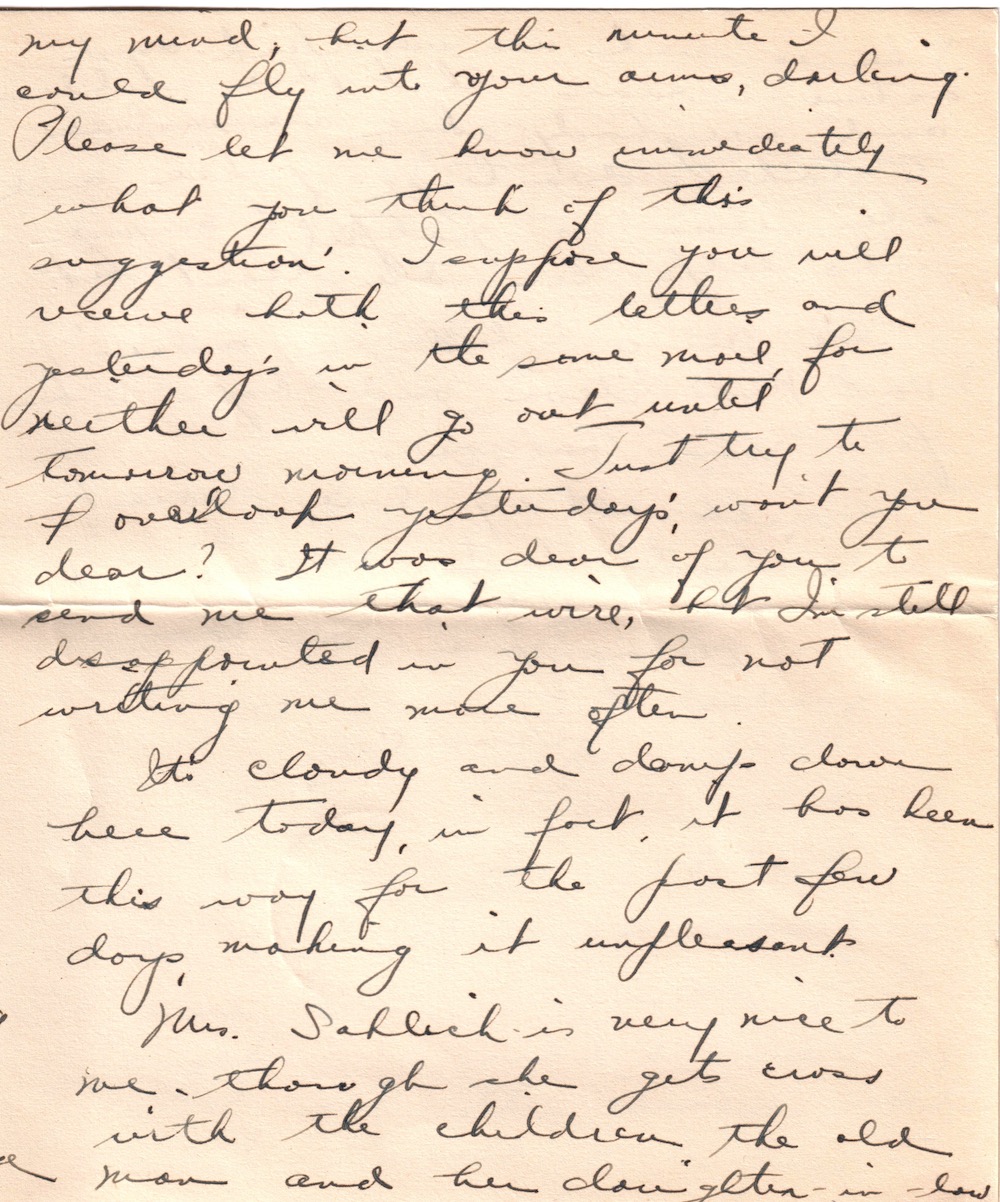 my mind, but this minute I
could fly into your arms, darling.
Please let me know immediately
what you think of this
suggestion. I suppose you will
receive both this letter and
yesterday's in the same mail, for
neither will go out until
tomorrow morning. Just try to
overlook yesterday's, won't you
dear? It was dear of you to
send me that wire, but I'm still
disappointed in you for not
writing me more often.
It's cloudy and damp down
here today, in fact, it has been
this way for the past few
days, making it unpleasant.
Mrs. is very nice to
me - though she gets cross
with the children the old
man and her daughter-in-law